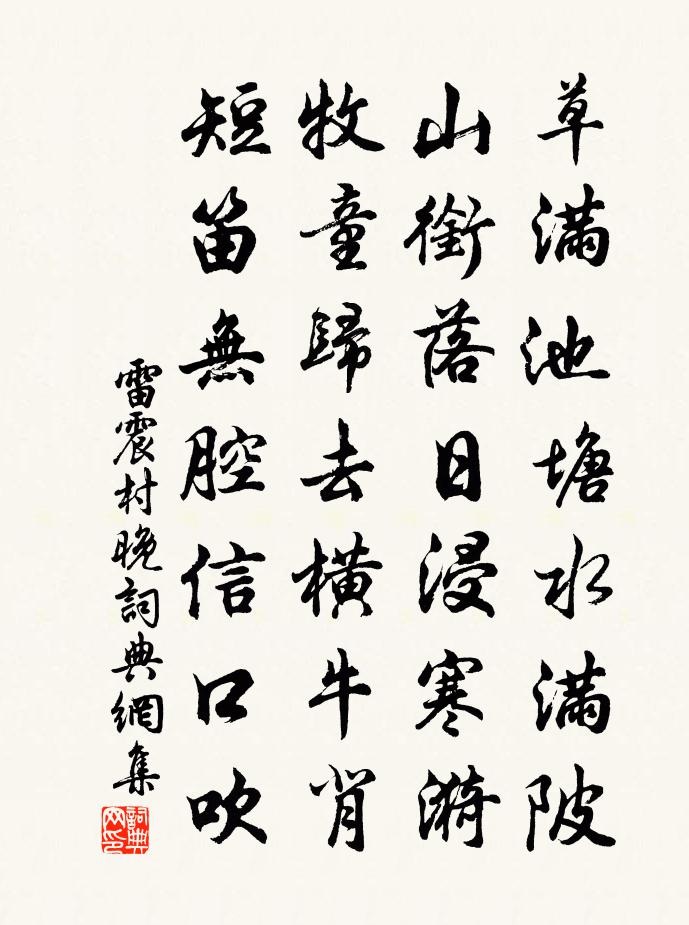 草滿池塘水滿陂
山銜落日浸寒漪
牧童歸去橫牛背
短笛無腔信口吹
雷震村晚詞典網集
詞典網印